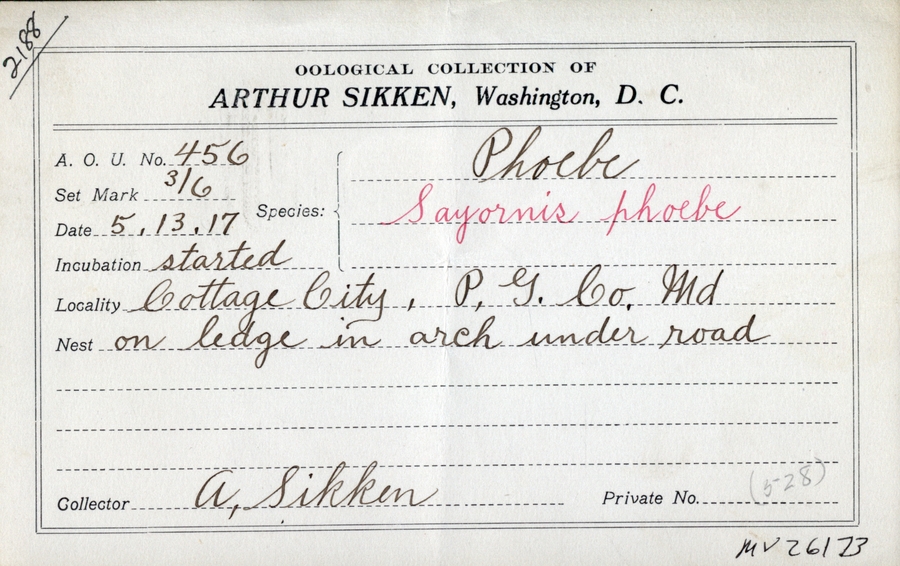 2188
OOLOGICAL COLLECTION OF
ARTHUR SIKKEN, Washington, D. C.
A. O. U. No. 456
Set Mark 3/6
Date 5.13.17
Incubation started
Species: Phoebe
Sayornis phoebe
Locality Cottage City, P. G. Co. Md
Nest on ledge in arch under road
Collector A. Sikken
Private No. (5-28)
MV26173